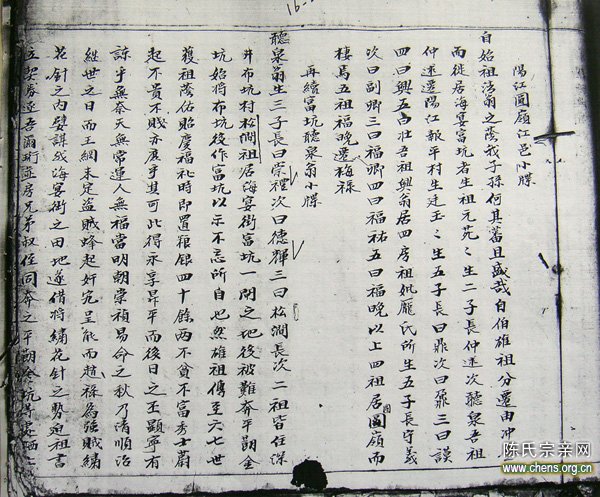 陽江圓嶺江邑小牒
自始祖浩翁之蔭我子孫何其蕃且盛哉自伯雄祖分遷由冲
而徙居海宴富坑者生祖元芫〻生二子長仲述次聽泉吾祖
仲述遷陽江報平村生廷玉〻生五子長曰鼎次曰鼐三曰謨
四曰興五曰壯吾祖興翁居四房祖妣龐氏所生五子長守義
次曰副卿三曰福卿四曰福祐五曰福晚以上四祖居圓嶺而
棲馬五祖福晚遷梅祿
再續富坑聽泉翁小牒
聽泉翁生三子長曰崇禮次曰德輝三曰松澗長次二祖皆住深
井布坑村松澗祖居海宴街富坑一之地後被難奔平勗金
坑始將布坑後作富坑以示不忘所自也然雄祖傳至六七世
護祖蔭佑貽慶福祉時即置粮銀四十餘兩不貧不富秀士蔚
起不貴不賤亦庶乎其可此得永享昇平而後日之丕顯寧有
諒乎無奈天無常運人無福當明朝崇禎易命之秋乃清順治
継世之日而王綱未定盜賊蜂起奸宄呈能而趙祿為強賊繡
花針之內嬖謀成海宴街之田地遂借將繡花針之勢迫祖書
立契券逐吾爾珩並房兄弟叔侄同奔之平勗金坑等處
陈氏宗亲网
www.chens.org.cn